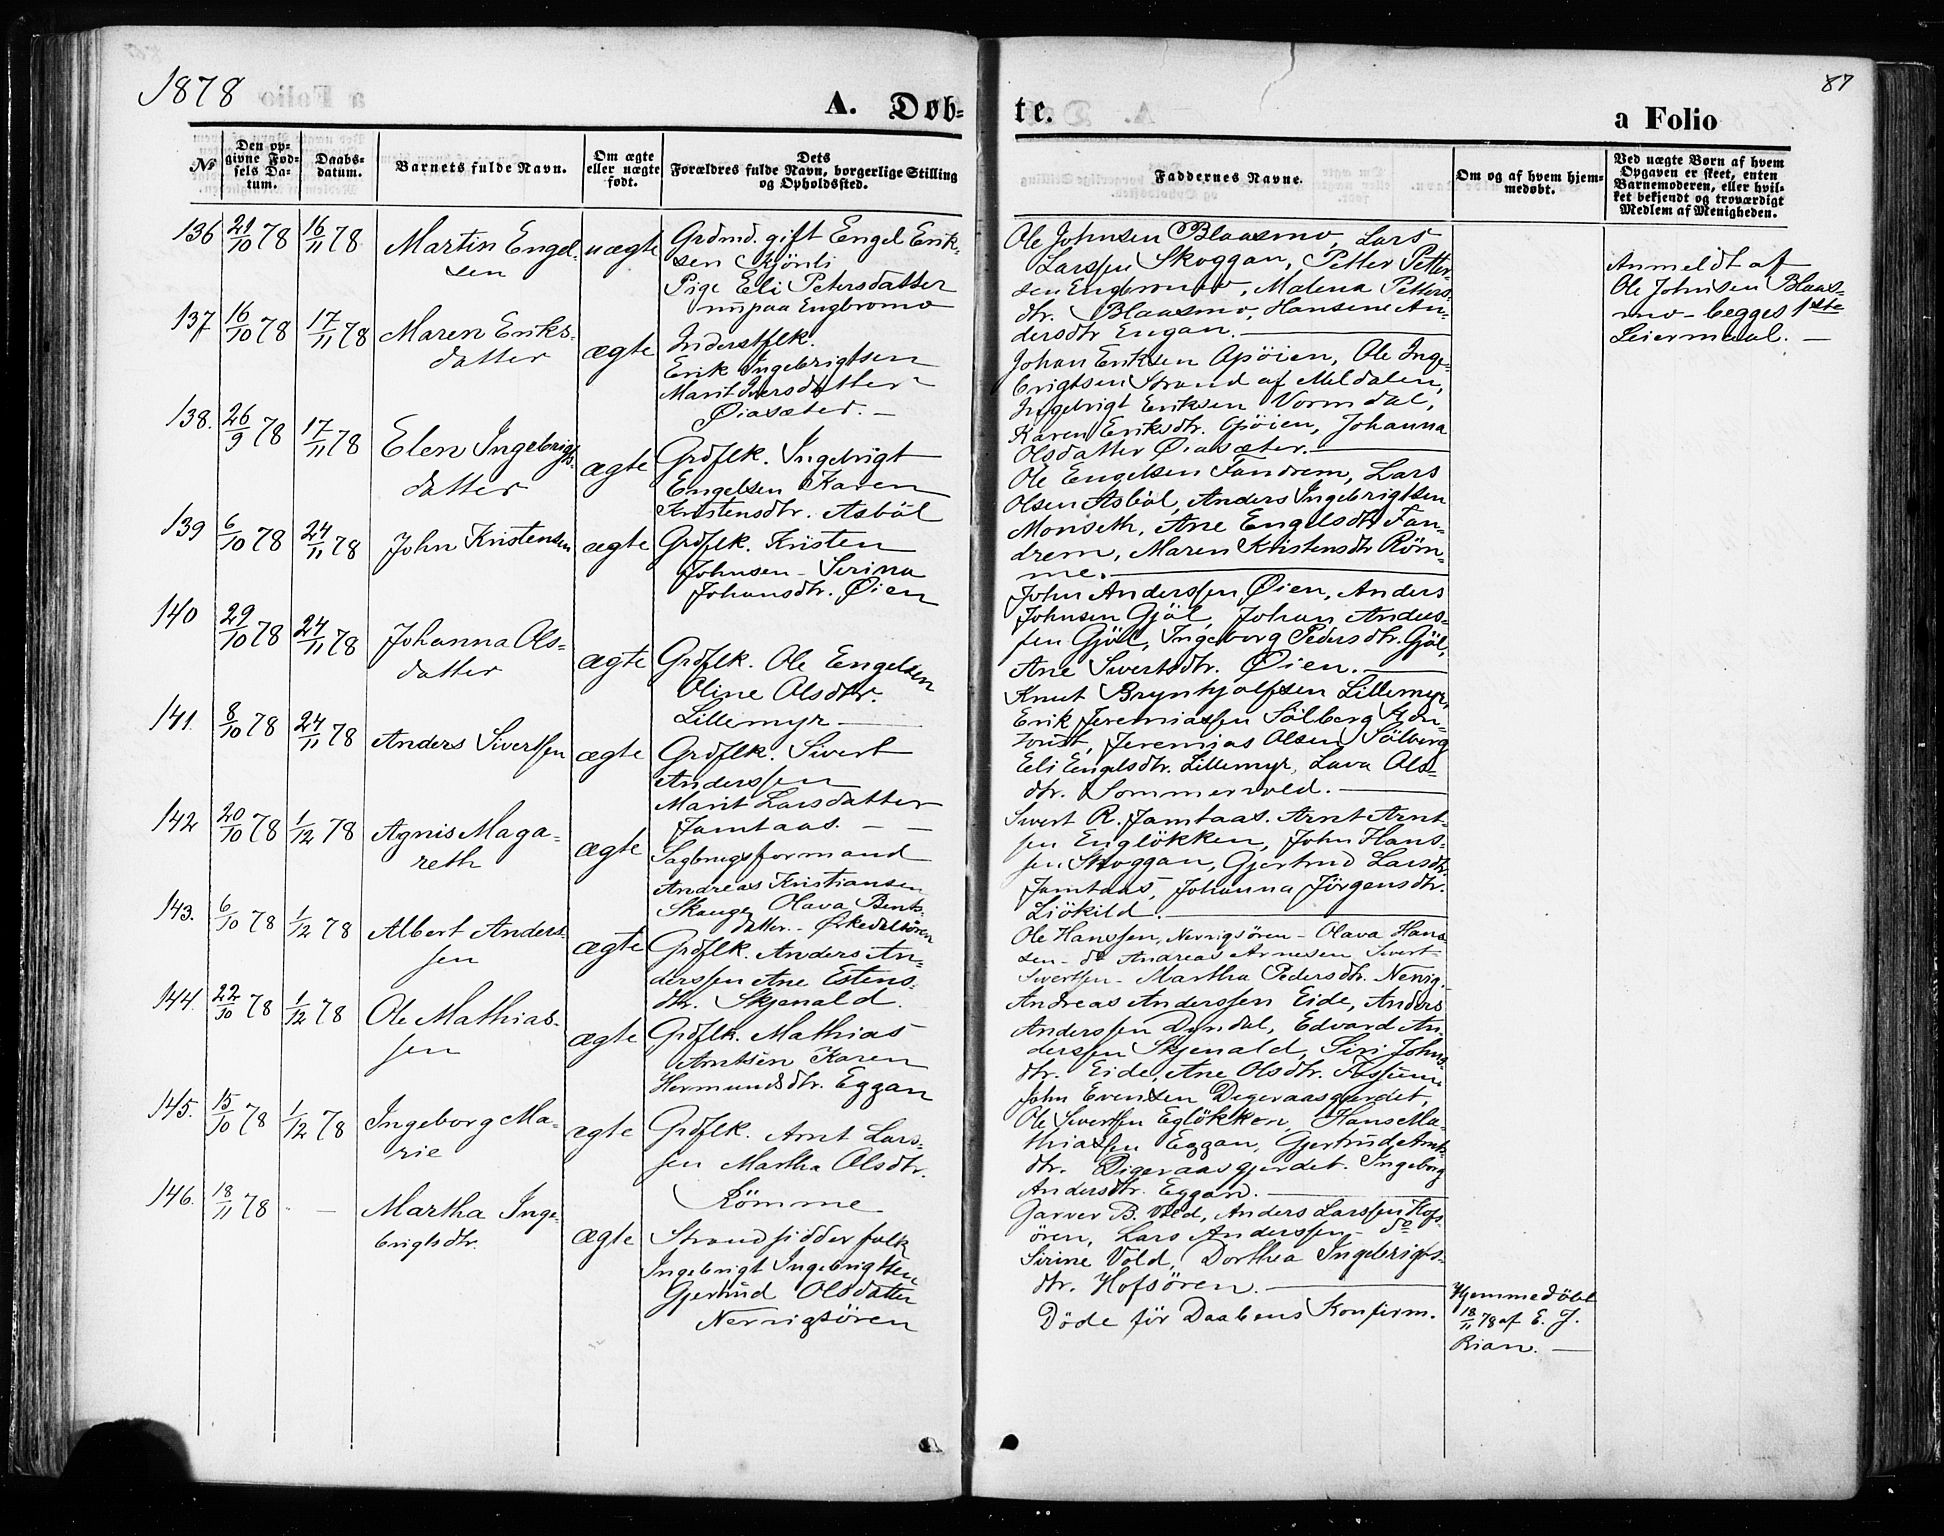 1878
A. Døb-
te.
a Folio
87
№
Den op-
givne Fød-
sels Da-
tum.
Daabs-
datum.
Barnets fulde Navn.
Om ægte
eller uægte
født.
Dets
Forældres fulde Navn, borgerlige Stilling
og Opholdssted.
Faddernes Navne.
Om og af hvem hjem-
medøbt.
Ved uægte Børn af hvem
Opgaven er skeet, enten
Barnemoderen, eller hvil-
ket bekjendt og troværdigt
Medlem af Menigheden.
136 21/10 78 16/11 78 Martin Engel-
sen
uægte
Grdmd. gift Engel Erik-
sen
Pige Eli Petersdatter
paa Engbromo
Ole Johnsen Blaasmo, Lars
Larssen Skoggan, Petter Petter-
sen Engbromo, Malena Petters-
dtr. Blaasmo, Hansine An-
dersdtr Engan.
Anmeldt af
Ole Johnsen Blaas-
mo - begges 1ste
Leiermaal. —
137 16/10 78 17/11 78 Maren Eriks-
datter
ægte
Inderstflk.
Erik Ingebrigtsen
Marit Iversdatter
Øiasæter. —
Johan Eriksen Opøien, Ole Inge-
brigtsen Strand af Meldalen,
Ingebrigt Eriksen Vormdal,
Karen Eriksdtr. Opøien, Johanna
Olsdatter Øiasæter.
138. 26/9 78 17/11 78 Elen Ingebrigts-
datter
ægte
Grdflk. Ingebrigt
Engelsen Karen
Kristensdtr. Asböl
Ole Engelsen Fandrem, Lars
Olsen Asböl, Anders Ingebrigtsen
Monseth, Ane Engelsdtr Fan-
drem, Maren Kristensdtr Röm-
me.
139 6/10 78 24/11 78 John Kristensen
ægte
Grdflk. Kristen
Johnsen - Serina
Johansdtr. Øien
John Anderssen Øien, Anders
Johnsen Gjöl, Johan Anders-
sen Gjöll, Ingeborg Pedersdtr. Gjöl,
Ane Sivertsdtr. Øien.
140 29/10 78 24/11 78 Johanna Ols-
datter
ægte
Grdflk. Ole Engelsen
Oline Olsdtr.
Lillemyr
Knut Brynhjolfsen Lillemyr,
Erik Jeremiassen Sölberg
Jeremias Olsen Sölberg
Eli Engelsdtr. Lillemyr, Lava Ols-
dtr. Sommervold.
141. 8/10 78 24/11 78 Anders Sivertsen
ægte
Grdflk. Sivert
Anderssen
Marit Larsdatter
Jamtaas. — —
Sivert R. Jamtaas. Arnt Arnt-
sen Englökken, John Hans-
sen Skoggan, Gjertrud Larsdtr.
Jamtaas, Johanna Jörgensdtr.
Liökild.
142 20/10 78 1/12 78 Agnis Maga-
reth
ægte
Sagbrugsformand
Andreas Kristiansen
Skauge, Olava Bents-
datter - Ørkedalsören
Ole Hanssen, Nervigsören - Olava Hans-
sen - do Andreas Arnesen, Sivert
Sivertsen - Martha Pedersdtr. Nervig.
143. 6/10 78 1/12 78 Albert Anders-
sen
ægte
Grdflk. Anders An-
derssen Ane Estens-
dtr. Skjenald.
Andreas Anderssen Eide, Anders
Anderssen Dyndal, Edvard An-
derssen Skjenald, Siri Johns-
dtr. Eide, Ane Olsdtr. Fossum.
144. 22/10 78 1/12 78 Ole Mathias-
sen
ægte
Grdflk. Mathias
Arntsen Karen
Hermundsdtr. Eggan
John Evensen Digeraasgjerdet,
Ole Sivertsen Eglökken, Hans Ma-
thiassen Eggan, Gjertrud Arnts-
dtr. Digeraasgjerdet. Ingeborg
Andersdtr. Eggan.
145. 15/10 78 1/12 78 Ingeborg Ma-
rie
ægte
Grdflk. Arnt Lars-
sen Martha Olsdtr.
Römme
Garver B. Vold, Anders Larssen Hofs-
ören, Lars Anderssen - do
Sirine Vold, Dorthea Ingebrigts-
dtr. Hofsören.
146. 18/11 78 - — Martha Inge-
brigtsdtr.
ægte
Strandsidderfolk
Ingebrigt Ingebrigtsen
Gjertrud Olsdatter
Nervigsören
Döde för Daabens Konfirm.
Hjemmedöbt
18/11 78 af E. J.
Rian. —